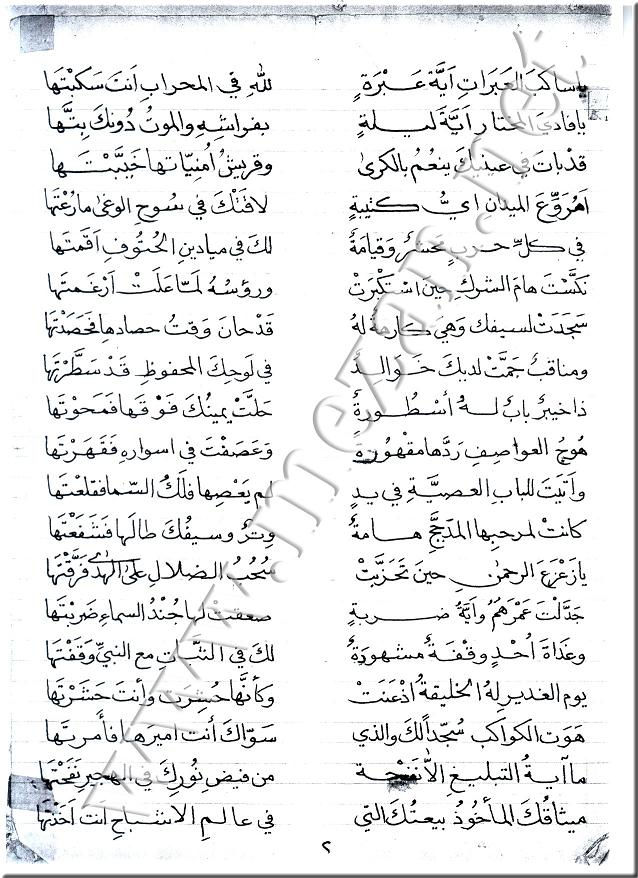 يا ساكبَ العَبَراتِ آيَّةَ عَبْرَةٍ للهِ في المحرابِ أنتَ سَكَبْتَها
يا فادي المختارِ آيَّةَ ليلةٍ بفراشِهِ والموتُ دُونَكَ بِتَّها
قد باتَ في عينيكَ ينعُمُ بالكرىٰ وقريشُ أُمنِيّاتها خَيَّبْتَها
أمُرَوِّعَ الميدانِ أيُّ كتيبةٍ لاقَتْكَ في سُوحِ الوغىٰ ما رُعْتَها
في كلِّ حربٍ محشرٌ وقيامةٌ لكَ في ميادينِ الحُتُوفِ أقَمْتَها
نكَّسْتَ هامَ الشركِ حينَ اسْتكبَرَتْ ورؤسُهُ لمّا عَلَتْ أرْغَمتَها
سَجَدَتْ لسيفكَ وهيَ كارهةٌ لهُ قد حانَ وقتُ حصادِها فحَصَدْتَها
ومناقبٌ جَمَّتْ لديكَ خَوَالدٌ في لَوحِكَ المحفوظِ قَدْ سَطَّرْتَها
ذا خيبرٌ بابٌ لهُ أُسْطُورةٌ حلَّتْ يمينُكَ فَوْقَها فمَحَوْتَها
هُوجُ العواصفِ رَدَّها مقهُورةً وعَصَفْتَ في اسوارِهِ فَقَهَرْتَها
وأتيتَ للبابِ العصيَّةِ في يدٍ لم يَعْصِها فَلَكُ السَّما فقلعتَها
كانتْ لمرحبِها المدَجَّجِ هامةٌ وِترٌ وسيفُكَ طالَها فَشَفَعْتَها
يا زعْزَعَ الرحمٰنِ حينَ تَحَزَّبَتْ سُحُبُ الضلالِ على الهدىٰ فَرَّقْتَها
جَدَّلْتَ عَمْرَهُمُ وآيَةُ ضربةٍ صعقتْ لها جُنْدُ السماءِ ضَرَبْتَها
وغَداةَ أُحْدٍ وقْفَةٌ مشهودةٌ لكَ في الثَّباتِ مع النبيِّ وَقَفْتَها
يوم الغديرِ لهُ الخليقةُ أذْعَنَتْ وكأنَّها حُشِرَت وأنتَ حَشَرْتَها
هَوَتِ الكواكبُ سُجّداً لكَ والذي سَوّاكَ أنت أميرَها فأمرتَها
ما آيةُ التبليغِ إلّا نَفْحةٌ من فيضِ نُورِكَ في الهجيرِ نَفَحْتَها
ميثاقُكَ المأخُوذُ بيعتُكَ التي في عالمِ الاشباحِ انت أخَذْتَها
٢
www.mezan.net